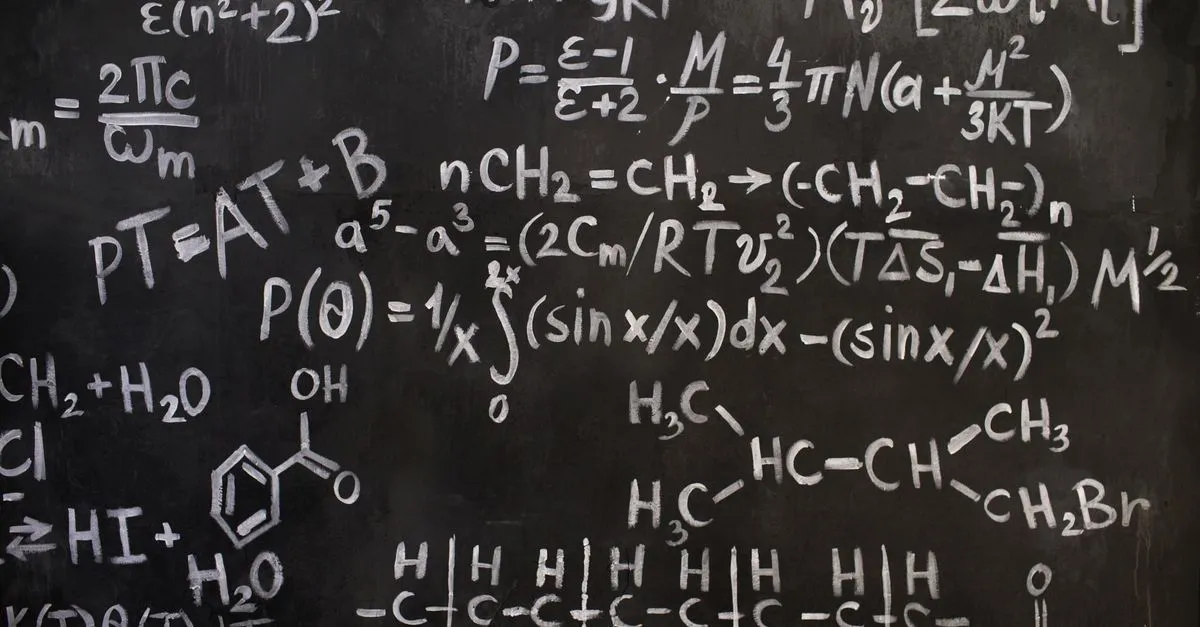 ε(n²+2)²
m = 2πc / ωm
P = ε-1 / ε+2 · M/P = 4/3 πN(a + M² / 3KT)
PT=AT+B
nCH₂=CH₂→(-CH₂-CH₂-)n
a⁵-a³=(2Cm/RTv₂²)(TΔS₁-ΔH₁)M½
P(θ)=1/x ∫₀²ˣ (sin x/x)dx-(sinx/x)²
CH₂+H₂O
Cl
OH
O
H₃C
CH₃
HC-CH
H₃C
CH₂Br
⇄HI+
H₂O
H H H H H H H H
-C-C-C-C-C-C-C-C-
O